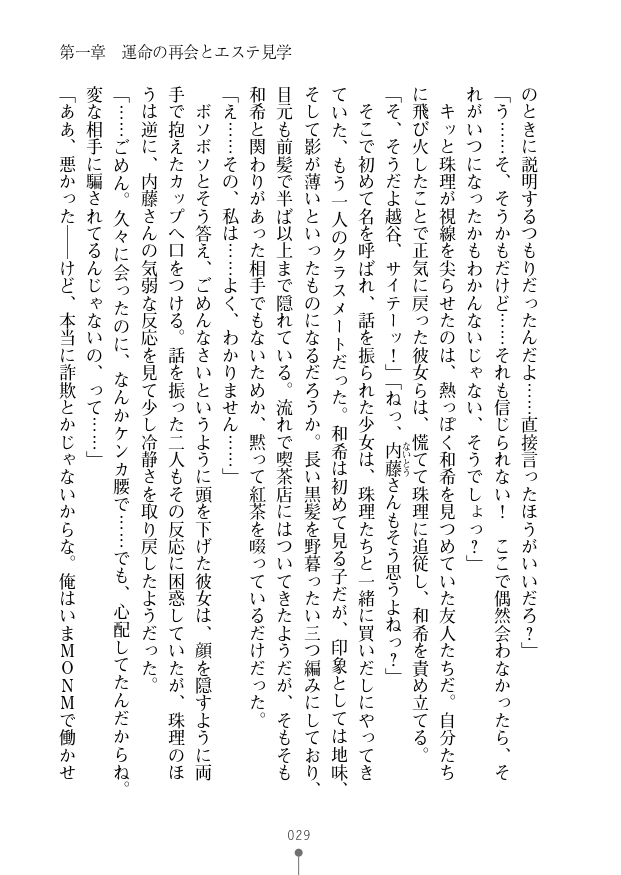 第一章　運命の再会とエステ見学
のときに説明するつもりだったんだよ……直接言ったほうがいいだろ？」
「う……そ、そうかもだけど……それも信じられない！　ここで偶然会わなかったら、そ
れがいつになったかもわかんないじゃない、そうでしょっ？」
　キッと珠理が視線を尖らせたのは、熱っぽく和希を見つめていた友人たちだ。自分たち
に飛び火したことで正気に戻った彼女らは、慌てて珠理に追従し、和希を責め立てる。
「そ、そうだよ越谷、サイテーッ！」「ねっ、内藤さんもそう思うよねっ？」
ないとう
　そこで初めて名を呼ばれ、話を振られた少女は、珠理たちと一緒に買いだしにやってき
ていた、もう一人のクラスメートだった。和希は初めて見る子だが、印象としては地味、
そして影が薄いといったものになるだろうか。長い黒髪を野暮ったい三つ編みにしており、
目元も前髪で半ば以上まで隠れている。流れで喫茶店にはついてきたようだが、そもそも
和希と関わりがあった相手でもないためか、黙って紅茶を啜っているだけだった。
「え……その、私は……よく、わかりません……」
　ボソボソとそう答え、ごめんなさいというように頭を下げた彼女は、顔を隠すように両
手で抱えたカップへ口をつける。話を振った二人もその反応に困惑していたが、珠理のほ
うは逆に、内藤さんの気弱な反応を見て少し冷静さを取り戻したようだった。
「……ごめん。久々に会ったのに、なんかケンカ腰で……でも、心配してたんだからね。
変な相手に騙されてるんじゃないの、って……」
「ああ、悪かった――けど、本当に詐欺とかじゃないからな。俺はいまＭＯＮＭで働かせ
029